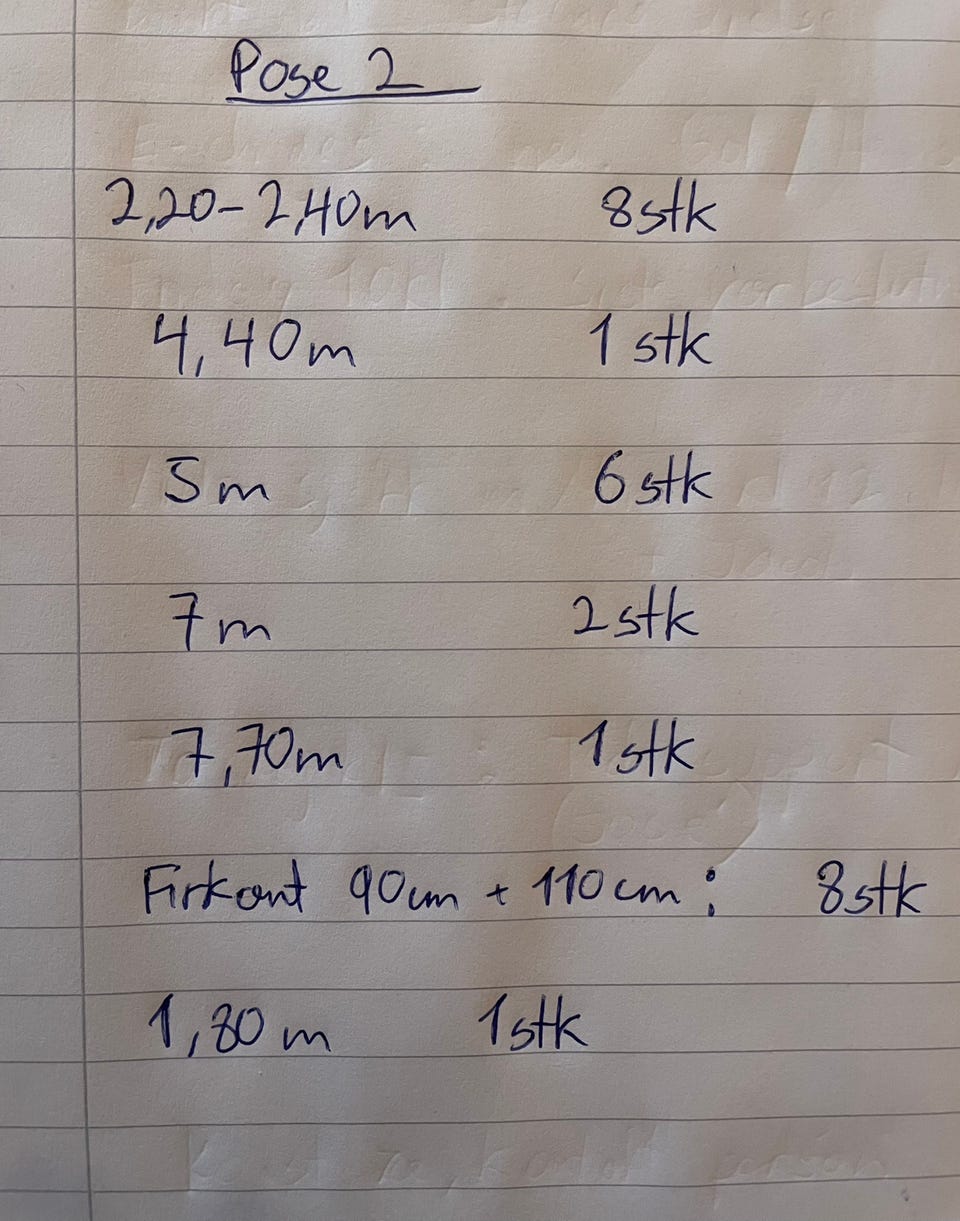 Pose 2
2,20-2,40m 8stk
4,40m 1 stk
5m 6stk
7m 2stk
7,70m 1stk
Firkant 90cm + 110cm: 8stk
1,80 m 1stk